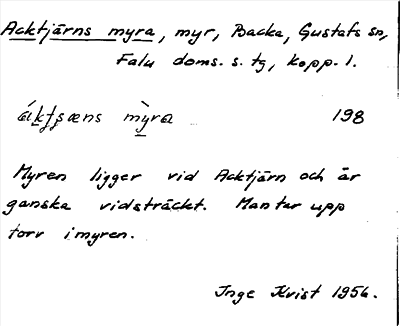 Acktjärns myra, myr, Backa, Gustafs sn,
Falu doms. s. tg, kopp. l.
myra 198
Myren ligger vid Acktjärn och är
ganska vidsträckt. Man tar upp
torv i myren.
Inge Kvist 1956.